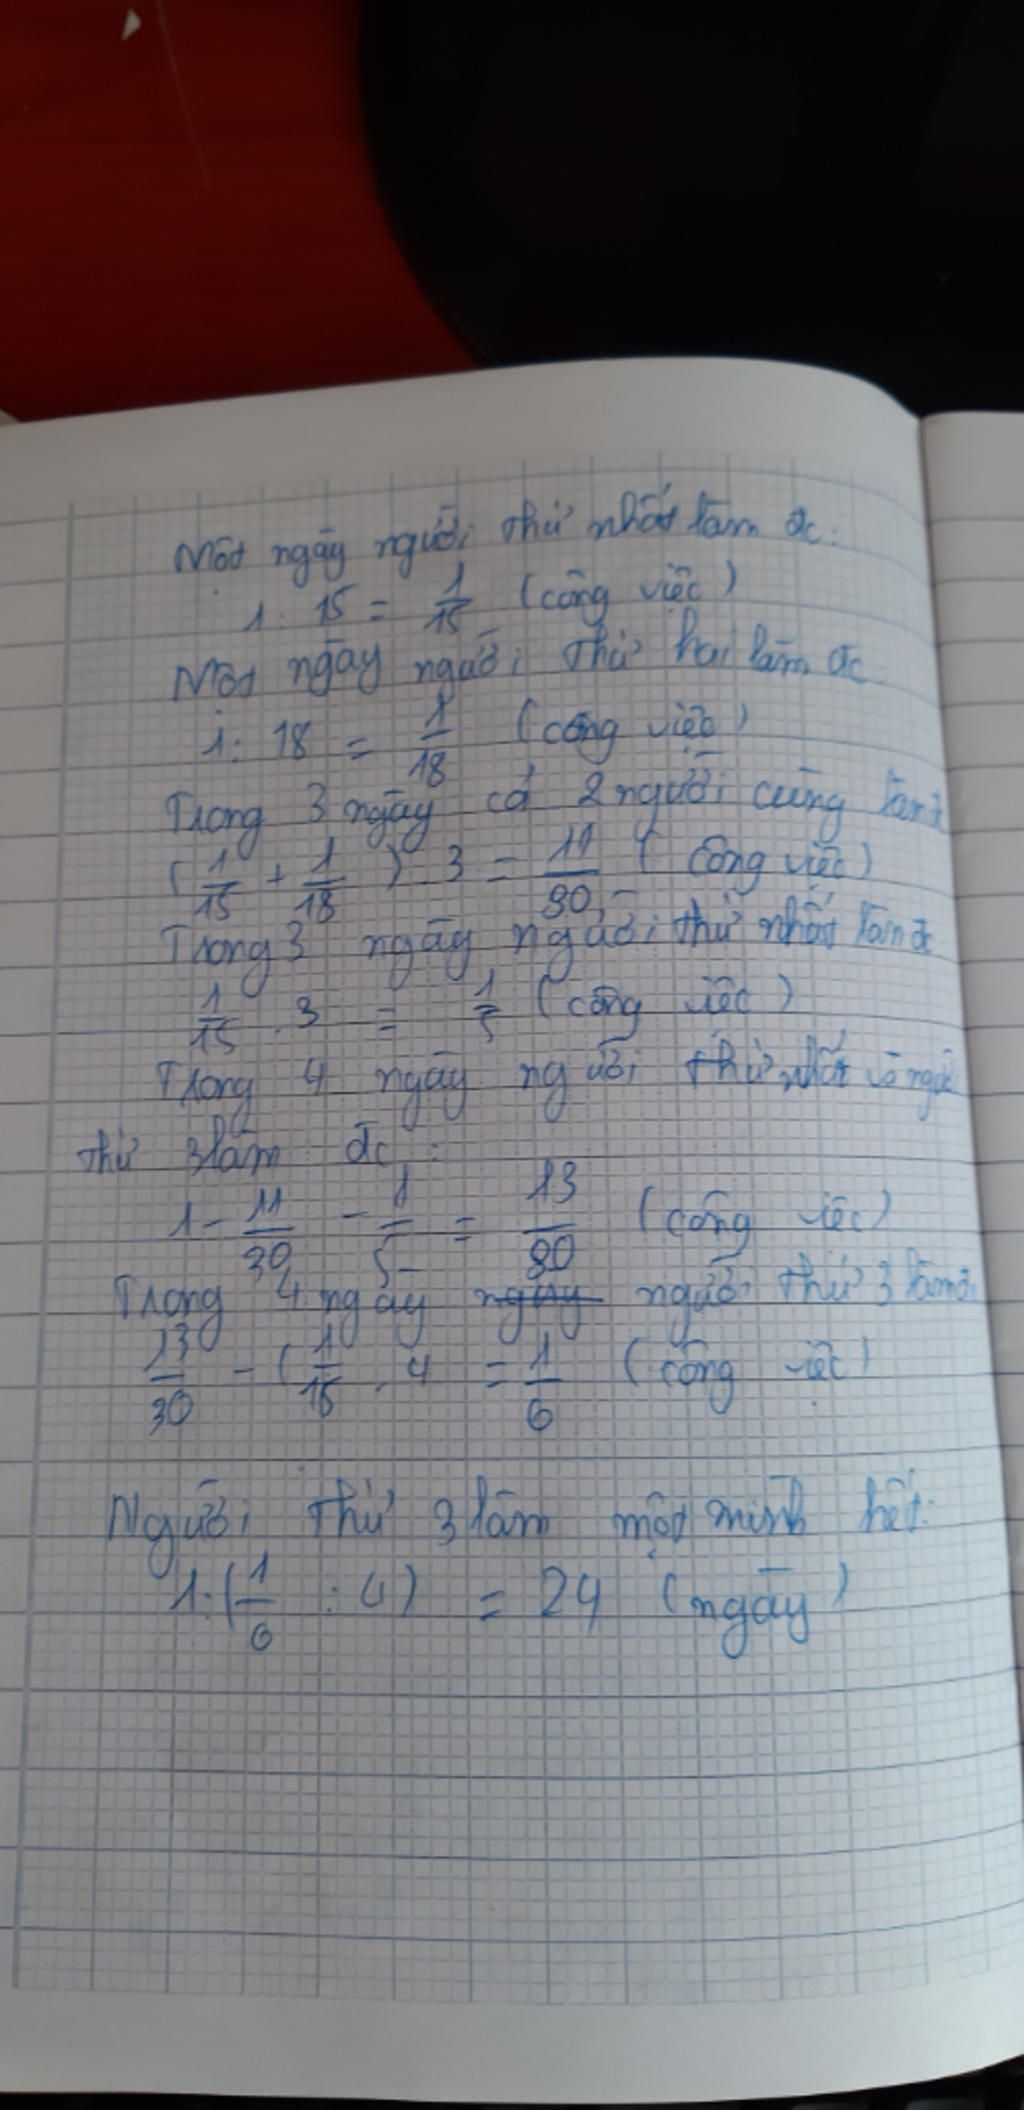 Một ngày người thứ nhất làm đc:
1 : 15 = 1/15 (công việc)
Một ngày người thứ hai làm đc
1 : 18 = 1/18 (công việc)
Trong 3 ngày cả 2 người cùng làm đ
(1/15 + 1/18) . 3 = 11/30 (công việc)
Trong 3 ngày người thứ nhất làm đc
1/15 . 3 = 1/5 (công việc)
Trong 4 ngày người thứ nhất và người
thứ 3 làm đc :
1 - 11/30 - 1/5 = 13/30 (công việc)
Trong 4 ngày ngày người thứ 3 làm đ
13/30 - (1/15 . 4 = 1/6 (công việc)
Người thứ 3 làm một mình hết:
1 : (1/6 : 4) = 24 (ngày)